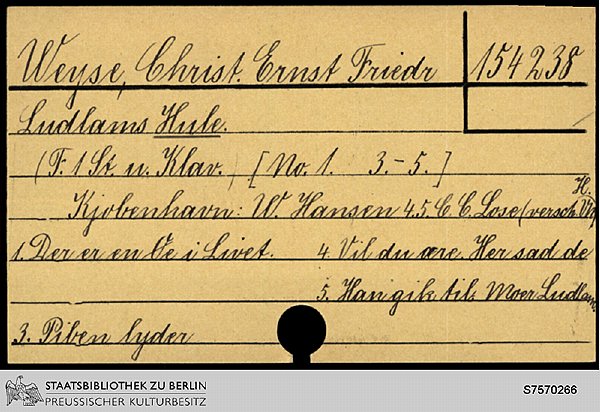 Weyse, Christ. Ernst Friedr
154238
Ludlams Hule.
(F. 1 St. u. Klav.) [No. 1. 3.-5.]
Kjobenhavn: W. Hansen 4.5. C. C. Lose (versch.
1. Der er en Oe i Livet. 4. Vil du ære. Her sad de
5. Han gik til Moer Ludlam
3. Piben lyder
STAATSBIBLIOTHEK ZU BERLIN
PREUSSISCHER KULTURBESITZ
S7570266